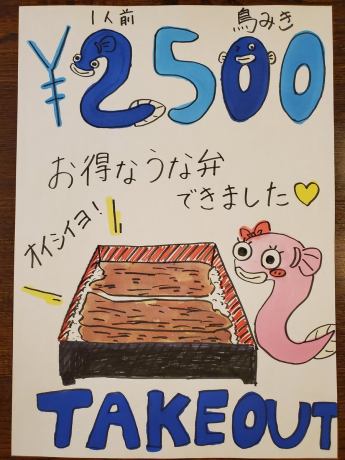 1人前 鳥みき
¥2500
お得なうな弁
できました
オイシイヨ!
TAKEOUT